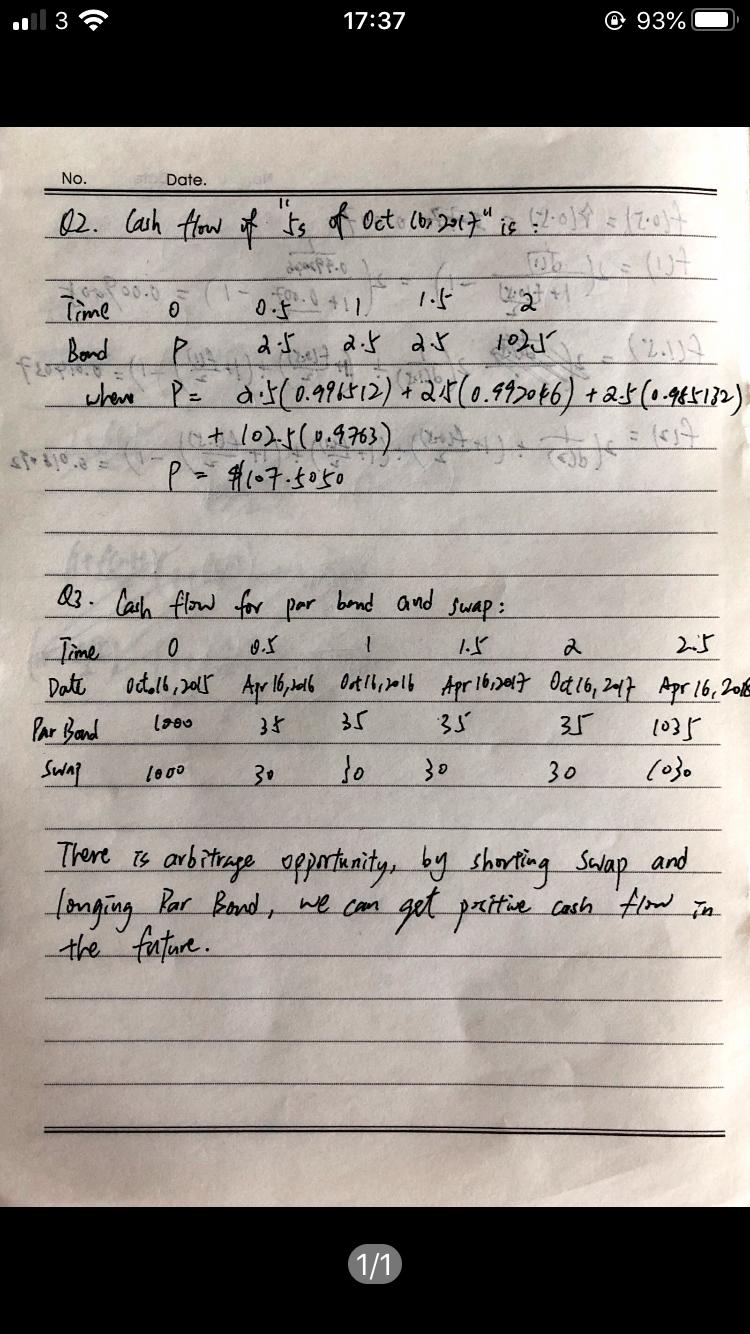 3 17:37 93%
No. Date.
Q2. Cash flow of "5s of Oct 16, 2017" is :
Time 0 0.5 1 1.5 2
Bond P 2.5 2.5 2.5 102.5
where P = 2.5(0.996512) + 2.5(0.992046) + 2.5(0.985132)
+ 102.5(0.9763)
P = $107.5050
Q3. Cash flow for par bond and swap:
Time 0 0.5 1 1.5 2 2.5
Date Oct.16,2015 Apr 16,2016 Oct 16,2016 Apr 16,2017 Oct 16, 2017 Apr 16, 2018
Par Bond 1000 35 35 35 35 1035
Swap 1000 30 30 30 30 1030
There is arbitrage opportunity, by shorting Swap and
longing Par Bond, we can get positive cash flow in
the future.
1/1